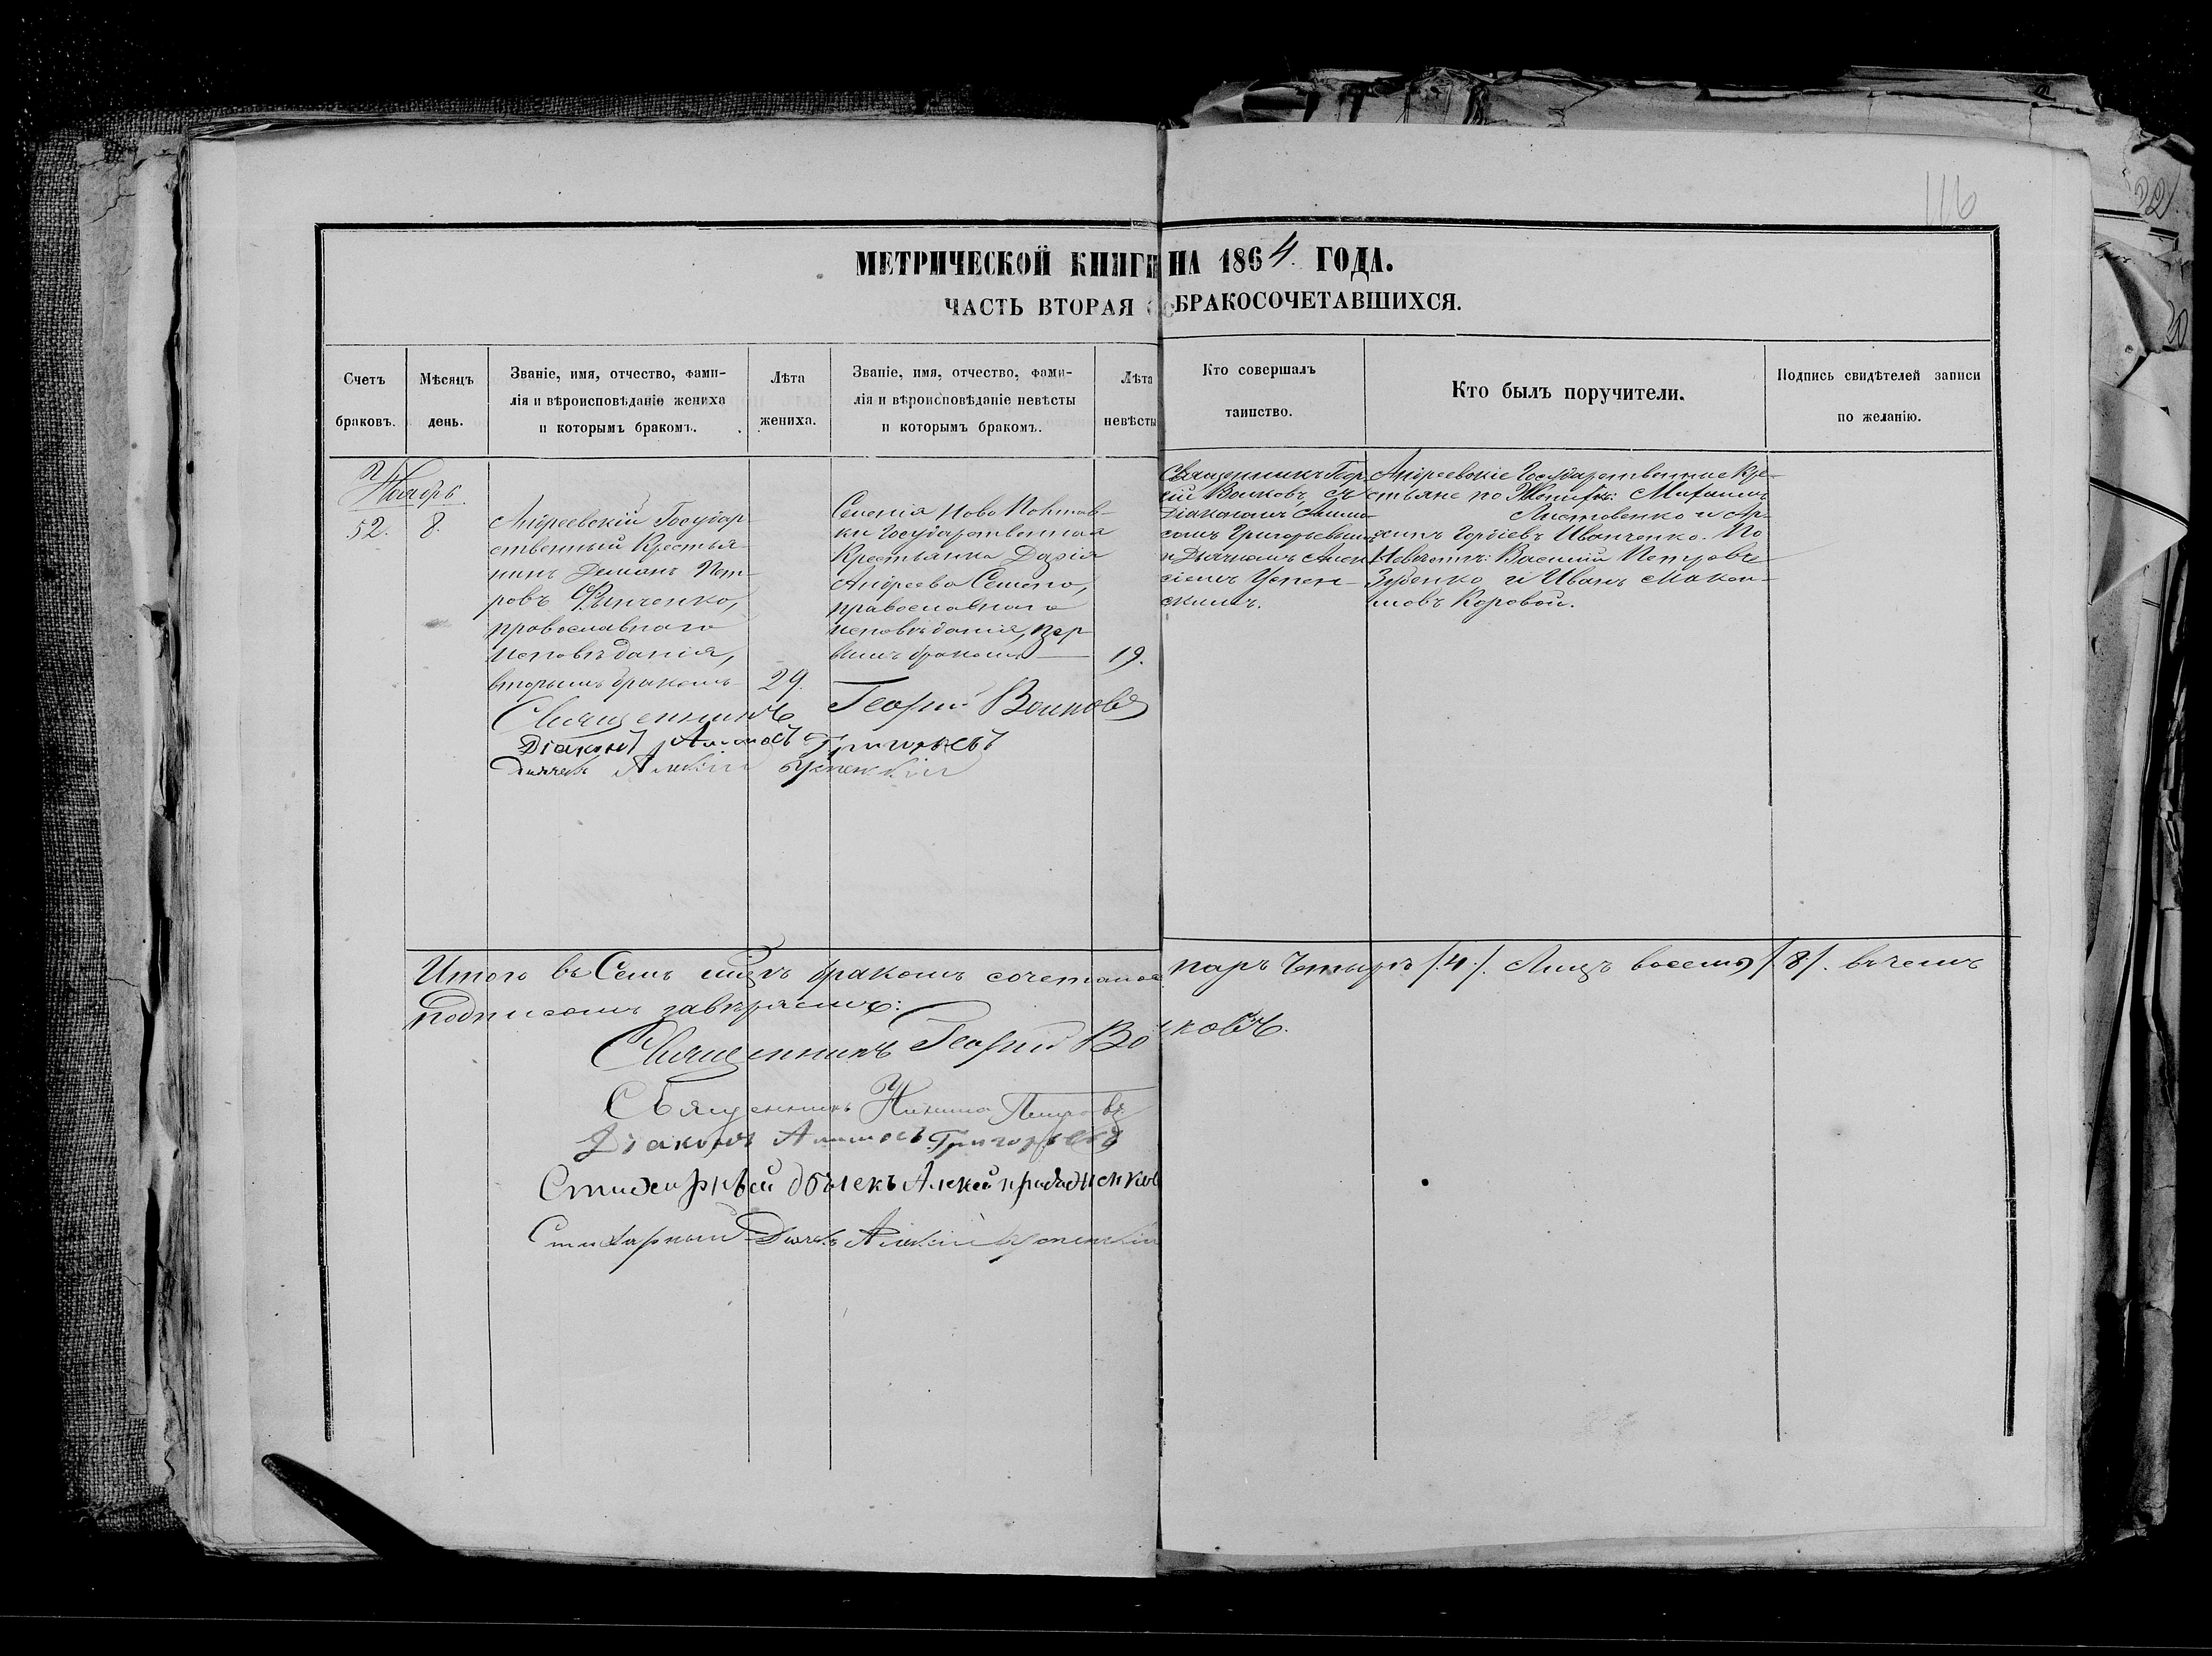 116
МЕТРИЧЕСКОЙ КНИГИ НА 1864. ГОДА.
ЧАСТЬ ВТОРАЯ О БРАКОСОЧЕТАВШИХСЯ.
Счетъ браковъ.
Мѣсяцъ день.
Званіе, имя, отчество, фами-
лія и вѣроисповѣданіе жениха
и которымъ бракомъ.
Лѣта жениха.
Званіе, имя, отчество, фами-
лія и вѣроисповѣданіе невѣсты
и которымъ бракомъ.
Лѣта невѣсты
Кто совершалъ таинство.
Кто былъ поручители.
Подпись свидѣтелей записи
по желанію.
Ноябрь
52.
8.
Андреевскій Государ-
ственный Крестья-
нинъ Демьянъ Пет-
ровъ
православнаго
исповѣданія,
вторымъ бракомъ
29.
Селенія Ново
Государственная
Крестьянка Дарія
Андреева
православнаго
исповѣданія, пер-
вымъ бракомъ
19.
Священникъ Геор-
гій Волковъ, съ
Діакономъ
Григорьевымъ
и Дьячкомъ Алек-
сіемъ Успен-
скимъ.
Андреевскіе Государственные Кре-
стьяне по Женихѣ: Михаилъ
Листовенко и
Гордіевъ Иванченко. По
Невѣстѣ: Василій Петровъ
Зубенко и Иванъ Макси-
мовъ Коровой.
Священникъ Георгій Волковъ
Діаконъ Григорьевъ
Дьячекъ Алексій Успенскій
Итого въ Семъ бракомъ сочеталось паръ Четыре /.4/. Лицъ восемь /.8/. въ чемъ
Подписомъ завѣряемъ:
Священникъ Георгій Волковъ.
Священникъ Никита Петровъ
Діаконъ Григорьевъ
Стихарный Алексей
Стихарный Дьячекъ Алексій Успенскій